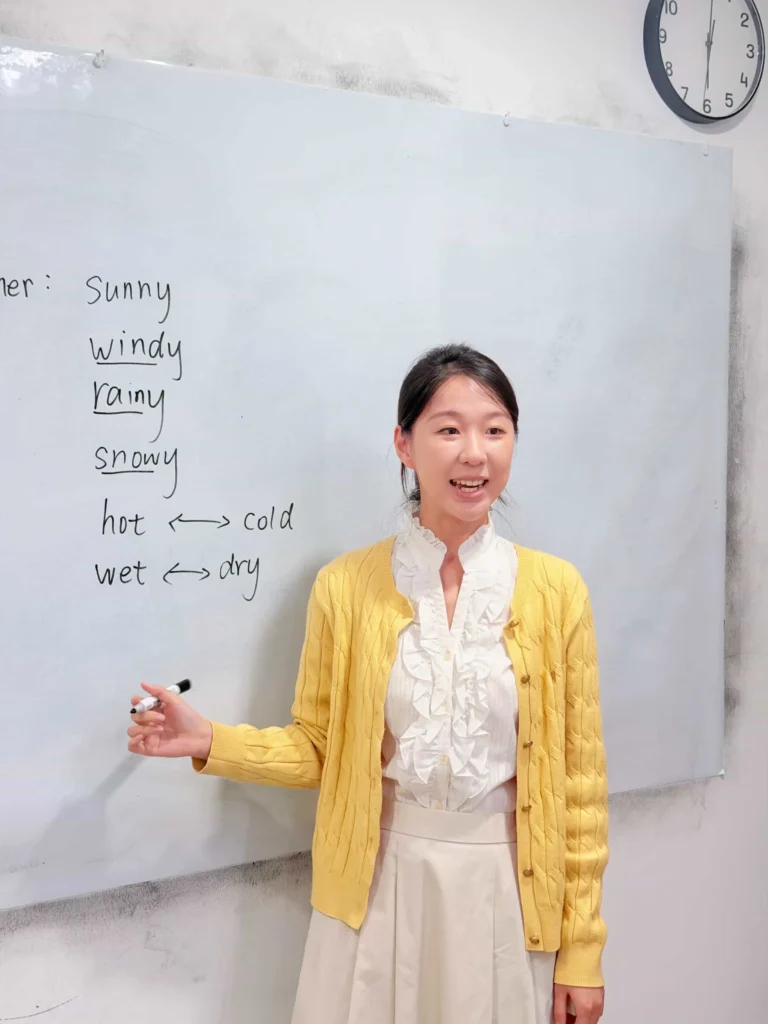 her: sunny
windy
rainy
snowy
hot ↔ cold
wet ↔ dry
10 2
9 3
8 4
7 6 5